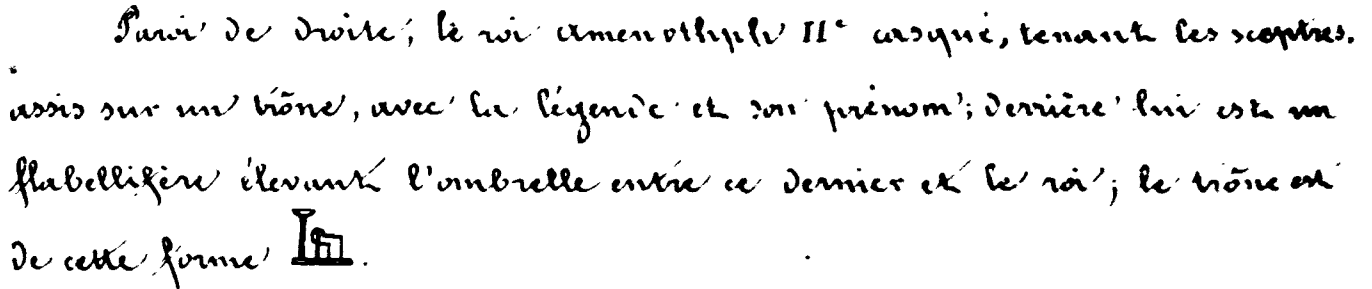 Paroi de droite; le roi Amenothph II<sup>e</sup> casqué, tenant les sceptres.
assis sur un trône, avec la légende et son prénom; derrière lui est un
flabellifère élevant l'ombrelle entre ce dernier et le roi; le trône est
de cette forme .